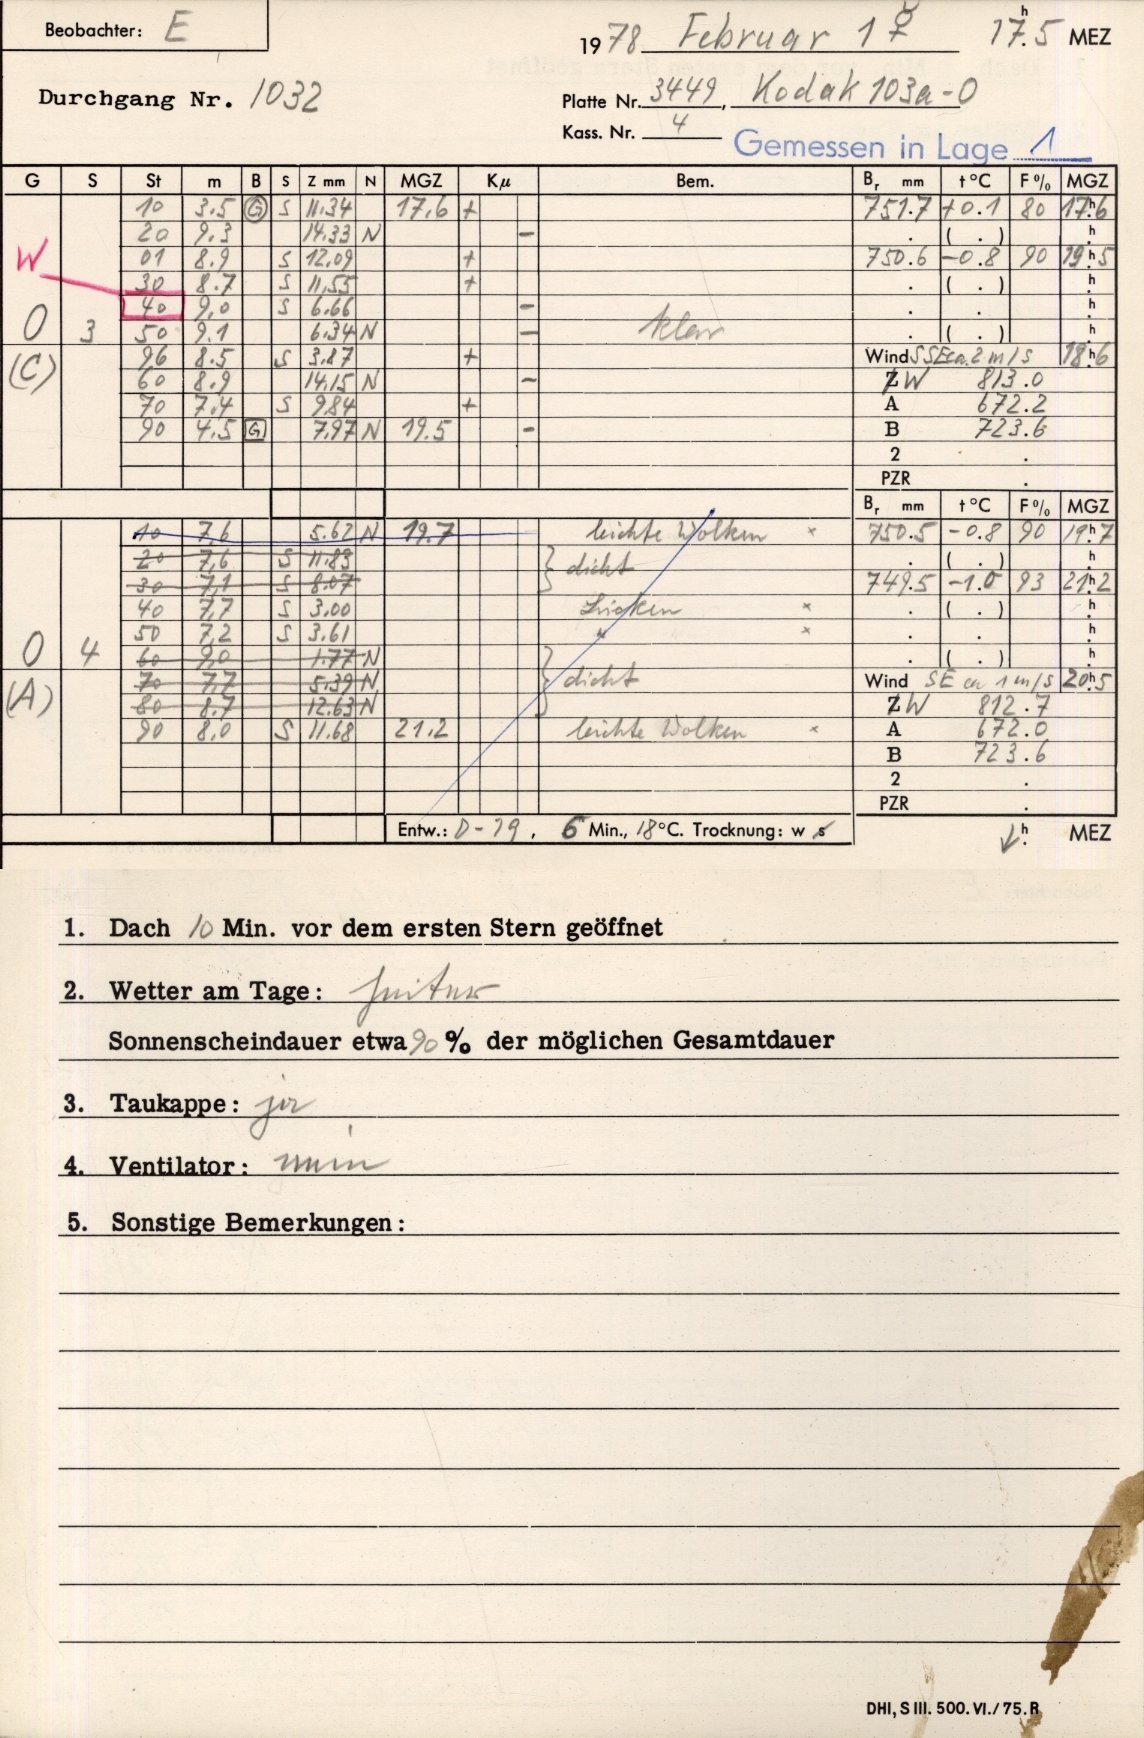 Beobachter: E
1978 Februar 1 ☿ 17h.5 MEZ
Durchgang Nr. 1032
Platte Nr. 3449, Kodak 103a-O
Kass. Nr. 4
Gemessen in Lage 1
G S St m B S Z mm N MGZ Kμ Bem. Br mm t °C F % MGZ
10 3.5 G S 11.34 17.6 + 751.7 +0.1 80 17h6
20 9.3 14.33 N − . ( . ) h
W 01 8.9 S 12.09 + 750.6 −0.8 90 19h5
30 8.7 S 11.55 + . ( . ) h
40 9.0 S 6.66 − . . h
O 3 50 9.1 6.34 N − klar . ( . ) h
(C) 96 8.5 S 3.87 + Wind SSE ca. 2 m/s 18h6
60 8.9 14.15 N − Z W 813.0
70 7.4 S 9.84 + A 672.2
90 4.5 G 7.97 N 19.5 − B 723.6
2 .
PZR .
Br mm t °C F % MGZ
10 7.6 5.62 N 19.7 leichte Wolken × 750.5 −0.8 90 19h7
20 7.6 S 11.83 } dicht . ( . ) h
30 7.1 S 8.07 749.5 −1.0 93 21h2
40 7.7 S 3.00 Lücken × . ( . ) h
O 4 50 7.2 S 3.61 " × . . h
60 9.0 1.77 N . ( . ) h
(A) 70 7.7 5.39 N } dicht Wind SE ca 1 m/s 20h5
80 8.7 12.63 N Z W 812.7
90 8.0 S 11.68 21.2 leichte Wolken × A 672.0
B 723.6
2 .
PZR .
Entw.: D-19, 6 Min., 18°C. Trocknung: w s h. MEZ
1. Dach 10 Min. vor dem ersten Stern geöffnet
2. Wetter am Tage: heiter
Sonnenscheindauer etwa 90 % der möglichen Gesamtdauer
3. Taukappe: ja
4. Ventilator: nein
5. Sonstige Bemerkungen:
DHI, S III. 500. VI./75. R